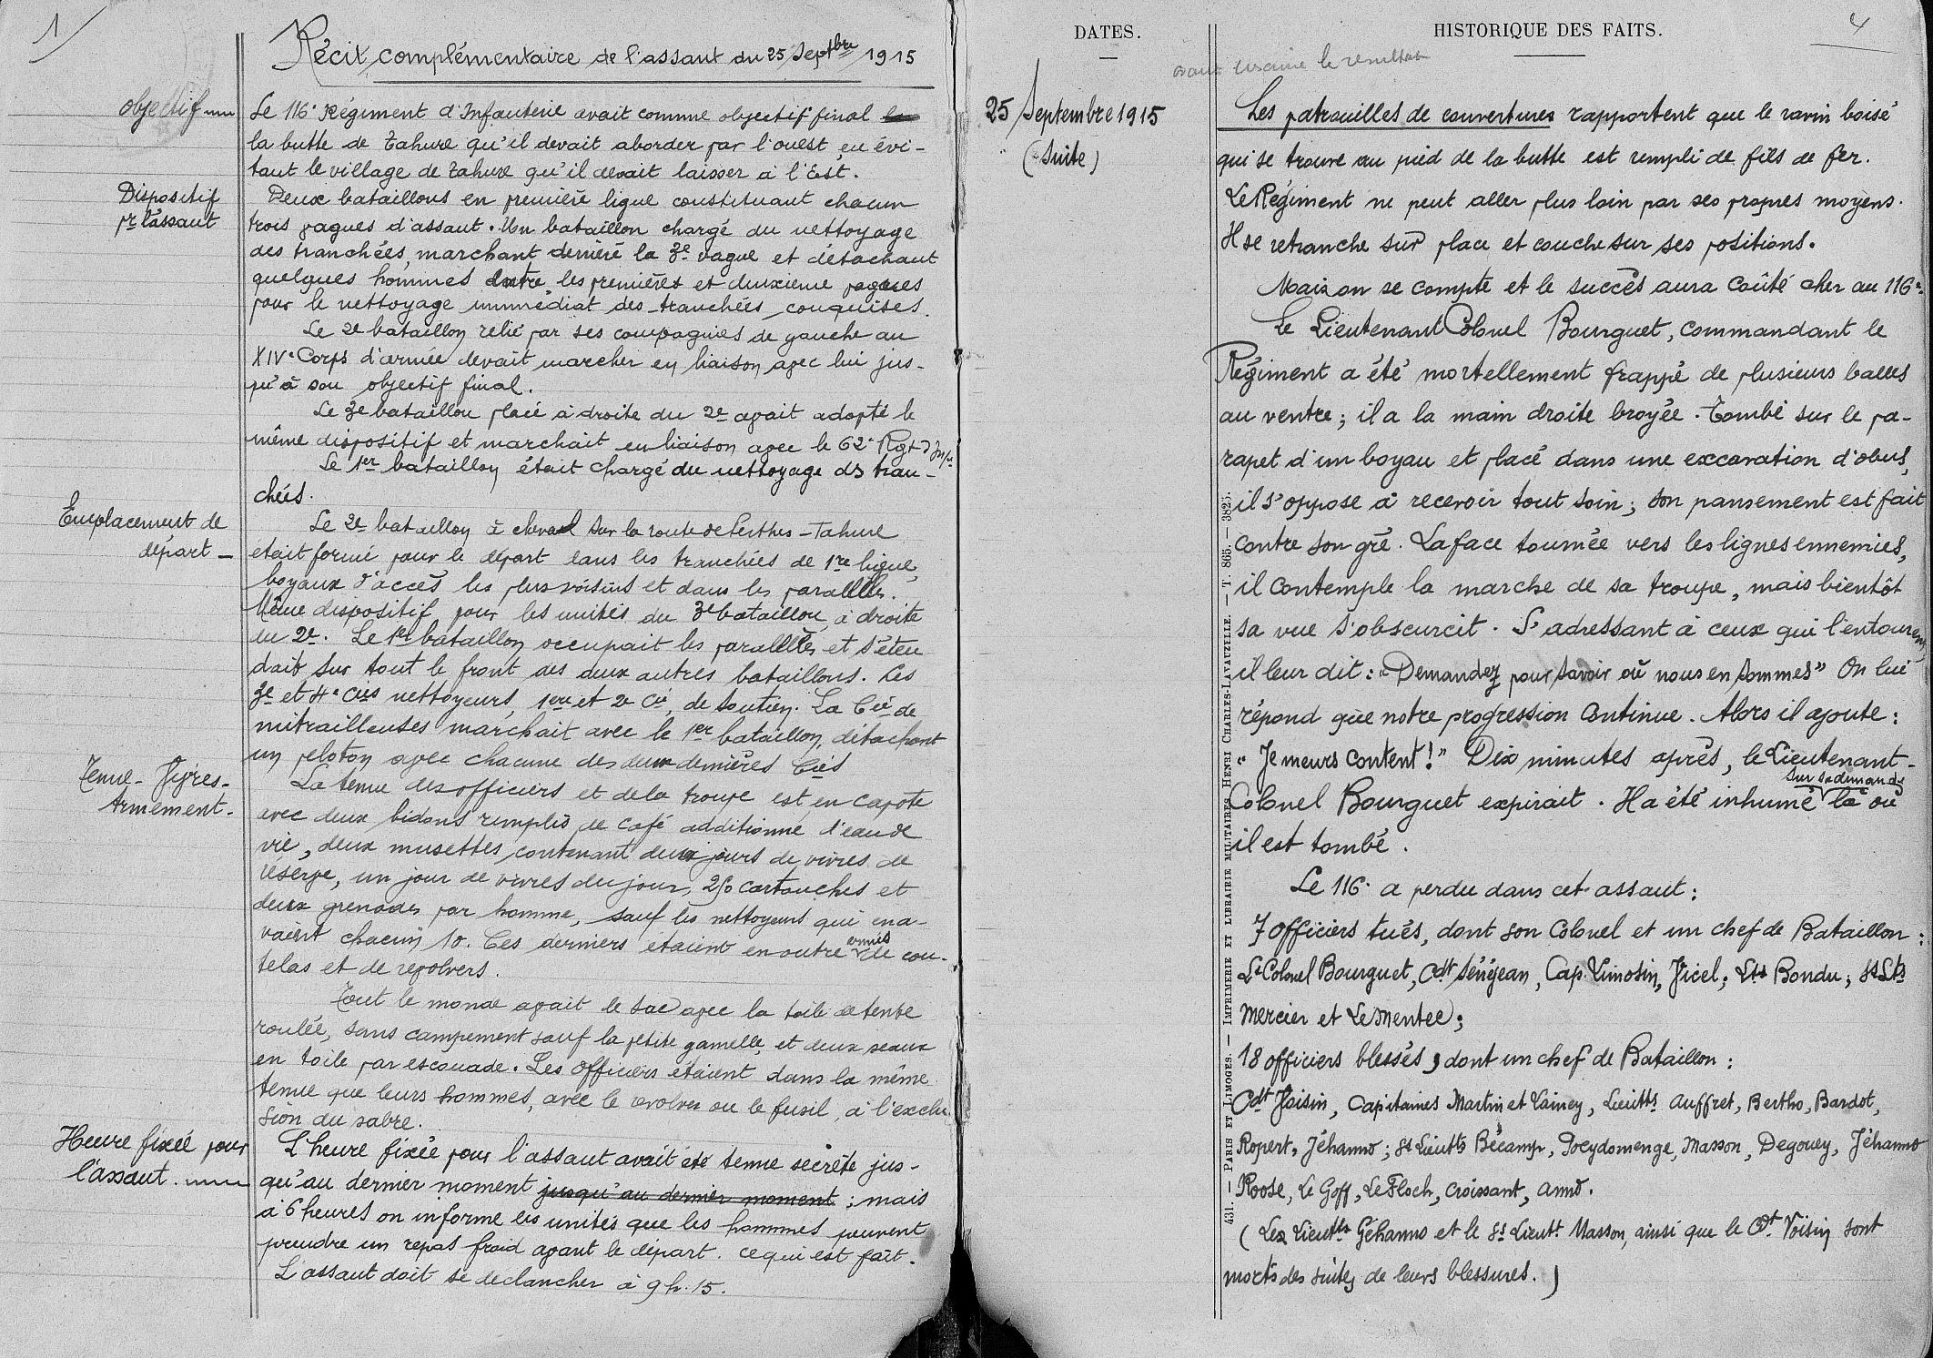 1
Récit complémentaire de l'assaut du 25 Septbre 1915
Objectif
Le 116e Régiment d'Infanterie avait comme objectif final
la butte de Tahure qu'il devait aborder par l'ouest en évi-
tant le village de Tahure qu'il devait laisser à l'Est.
Dispositif
pr l'assaut
Deux bataillons en première ligne constituant chacun
trois vagues d'assaut. Un bataillon chargé du nettoyage
des tranchées, marchant derrière la 3e vague et détachant
quelques hommes entre les premières et deuxième vagues
pour le nettoyage immédiat des tranchées conquises.
Le 2e bataillon relié par ses compagnies de gauche au
XIVe Corps d'armée devait marcher en liaison avec lui jus-
qu'à son objectif final.
Le 3e bataillon placé à droite du 2e avait adopté le
même dispositif et marchait en liaison avec le 62e Rgt d'Inf
Le 1er bataillon était chargé du nettoyage ds tran-
chées.
Emplacement de
départ
Le 2e bataillon à cheval sur la route de Perthes-Tahure
était formé pour le départ dans les tranchées de 1re ligne,
boyaux d'accès les plus voisins et dans les parallèles.
Même dispositif pour les unités du 3e bataillon, à droite
du 2e. Le 1er bataillon occupait les parallèles et s'éten
dait sur tout le front des deux autres bataillons. Les
3e et 4e Cies nettoyeurs, 1ere et 2e Cie, de soutien. La Cie de
mitrailleuses marchait avec le 1er bataillon, détachant
un peloton avec chacune des deux dernières Cies
Tenue - Vivres -
Armement -
La tenue des officiers et de la troupe est en capote
avec deux bidons remplis de café additionné d'eau de
vie, deux musettes contenant deux jours de vivres de
réserve, un jour de vivres du jour, 250 cartouches et
deux grenades par homme, sauf les nettoyeurs qui en a-
vaient chacun 10. Ces derniers étaient en outre armés de cou-
telas et de revolvers.
Tout le monde avait le sac avec la toile de tente
roulée, sans campement sauf la petite gamelle, et deux seaux
en toile par escouade. Les officiers étaient dans la même
tenue que leurs hommes, avec le revolver ou le fusil, à l'exclu
sion du sabre.
Heure fixée pour
l'assaut.
L'heure fixée pour l'assaut avait été tenue secrète jus-
qu'au dernier moment jusqu'au dernier moment ; mais
à 6 heures on informe les unités que les hommes peuvent
prendre un repas froid avant le départ. ce qui est fait.
L'assaut doit se declancher à 9 h. 15.
DATES.
HISTORIQUE DES FAITS.
4
le résultat
25 Septembre 1915
(Suite)
Les patrouilles de couvertures rapportent que le ravin boisé
qui se trouve au pied de la butte est rempli de fils de fer.
Le Régiment ne peut aller plus loin par ses propres moyens.
Il se retranche sur place et couche sur ses positions.
Mais on se compte et le succès aura coûté cher au 116e.
Le Lieutenant Colonel Bourguet, commandant le
Régiment a été mortellement frappé de plusieurs balles
au ventre ; il a la main droite broyée. Tombé sur le pa-
rapet d'un boyau et placé dans une excavation d'obus,
il s'oppose à recevoir tout soin ; son pansement est fait
contre son gré. La face tournée vers les lignes ennemies,
il contemple la marche de sa troupe, mais bientôt
sa vue s'obscurcit. S'adressant à ceux qui l'entourent
il leur dit : "Demandez pour savoir où nous en sommes" On lui
répond que notre progression continue. Alors il ajoute :
"Je meurs content !" Dix minutes après, le Lieutenant-
Colonel Bourguet expirait. Il a été inhumé sur sa demande là où
il est tombé.
Le 116e a perdu dans cet assaut :
7 officiers tués, dont son Colonel et un chef de Bataillon :
Lt Colonel Bourguet, Cdt Sénéjean, Cap. Limosin, Jicel ; Lts Bondu ; St Lts
Mercier et Le Mentec ;
18 officiers blessés, dont un chef de Bataillon :
Cdt Voisin, Capitaines Martin et Lainey, Lieutts Auffret, Bertho, Bardot,
Ropert, Jéhanno ; St Lieutts Bécamp, Poeydomenge, Masson, Degouey, Jéhanno
Roose, Le Goff, Le Floch, Croissant, Anno.
(Les Lieutts Géhanno et le St Lieutt Masson, ainsi que le Cdt Voisin sont
morts des suites de leurs blessures.)
431. — PARIS ET LIMOGES. — IMPRIMERIE ET LIBRAIRIE MILITAIRES HENRI CHARLES-LAVAUZELLE. — T. 865. — 3825.